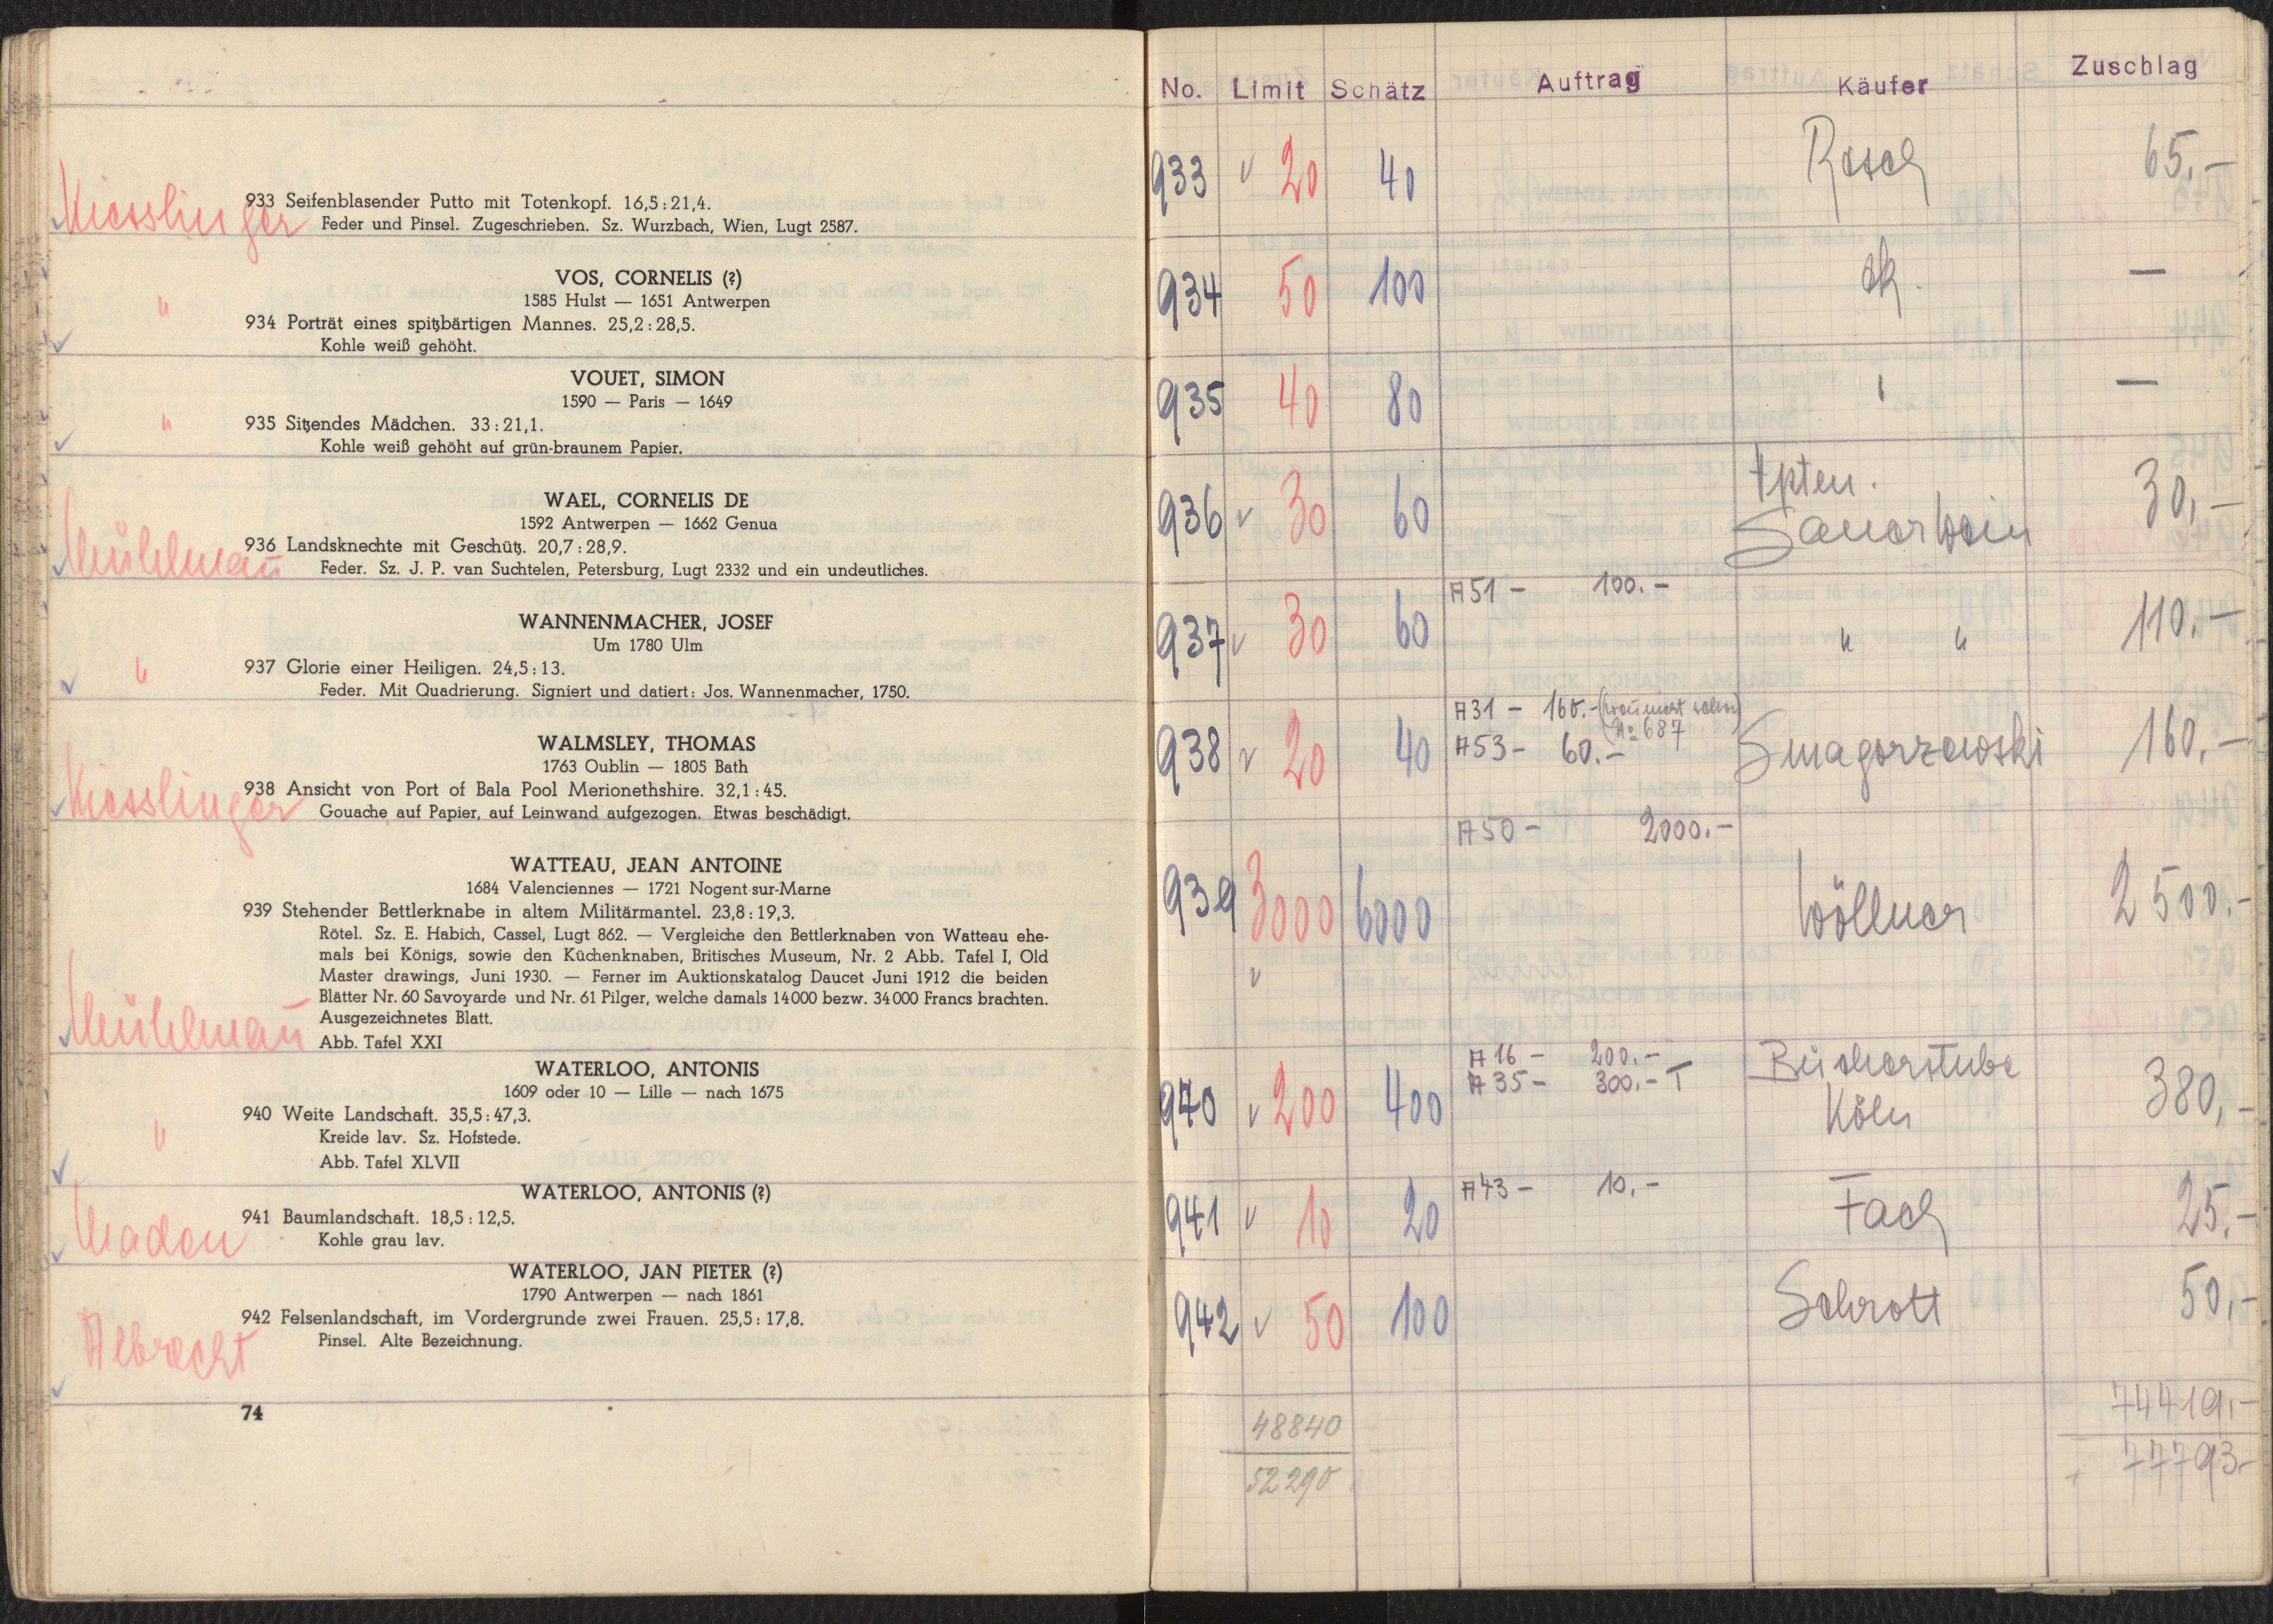 Kiesslinger
933 Seifenblasender Putto mit Totenkopf. 16,5 : 21,4.
Feder und Pinsel. Zugeschrieben. Sz. Wurzbach, Wien, Lugt 2587.
VOS, CORNELIS (?)
1585 Hulst — 1651 Antwerpen
"
934 Porträt eines spitzbärtigen Mannes. 25,2 : 28,5.
Kohle weiß gehöht.
VOUET, SIMON
1590 — Paris — 1649
"
935 Sitzendes Mädchen. 33 : 21,1.
Kohle weiß gehöht auf grün-braunem Papier.
WAEL, CORNELIS DE
1592 Antwerpen — 1662 Genua
936 Landsknechte mit Geschütz. 20,7 : 28,9.
Mühlmañ
Feder. Sz. J. P. van Suchtelen, Petersburg, Lugt 2332 und ein undeutliches.
WANNENMACHER, JOSEF
Um 1780 Ulm
"
937 Glorie einer Heiligen. 24,5 : 13.
Feder. Mit Quadrierung. Signiert und datiert: Jos. Wannenmacher, 1750.
WALMSLEY, THOMAS
1763 Oublin — 1805 Bath
Kiesslinger
938 Ansicht von Port of Bala Pool Merionethshire. 32,1 : 45.
Gouache auf Papier, auf Leinwand aufgezogen. Etwas beschädigt.
WATTEAU, JEAN ANTOINE
1684 Valenciennes — 1721 Nogent sur-Marne
939 Stehender Bettlerknabe in altem Militärmantel. 23,8 : 19,3.
Rötel. Sz. E. Habich, Cassel, Lugt 862. — Vergleiche den Bettlerknaben von Watteau ehe-
mals bei Königs, sowie den Küchenknaben, Britisches Museum, Nr. 2 Abb. Tafel I, Old
Master drawings, Juni 1930. — Ferner im Auktionskatalog Daucet Juni 1912 die beiden
Blätter Nr. 60 Savoyarde und Nr. 61 Pilger, welche damals 14000 bezw. 34000 Francs brachten.
Ausgezeichnetes Blatt.
Mühlmañ
Abb. Tafel XXI
WATERLOO, ANTONIS
1609 oder 10 — Lille — nach 1675
940 Weite Landschaft. 35,5 : 47,3.
"
Kreide lav. Sz. Hofstede.
Abb. Tafel XLVII
WATERLOO, ANTONIS (?)
941 Baumlandschaft. 18,5 : 12,5.
Kohle grau lav.
WATERLOO, JAN PIETER (?)
1790 Antwerpen — nach 1861
942 Felsenlandschaft, im Vordergrunde zwei Frauen. 25,5 : 17,8.
Albrecht
Pinsel. Alte Bezeichnung.
74
No. Limit Schätz Auftrag Käufer Zuschlag
933 20 40 65,-
934 50 100 —
935 40 80 —
936 30 60 Sauerwein 30,-
A51 - 100.-
937 30 60 " " 110.-
A31 - 160.-
No 687
938 20 40 A53 - 60.- Smagorzewski 160,-
A50 - 2000.-
939 3000 6000 Wöllner 2500.-
A16 - 200.-
A35 - 300.- T
940 200 400 Bücherstube Köln 380,-
A43 - 10,-
941 10 20 Fach 25.-
942 50 100 Schrott 50,-
48840 74419,-
52290 77793-